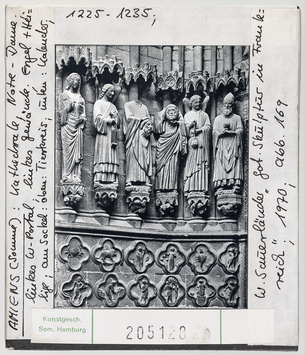 1225-1235;
AMIENS (Somme) Kathedrale, Notre-Dame.
linkes W-Portal, linkes Gewände: Engel + Hei-
lige; am Sockel: oben: Tierkreis, unten: Kalender;
W. Sauerländer "Got. Skulptur in Frank-
reich"; 1970. Abb. 169
Kunstgesch.
Sem. Hamburg
205128